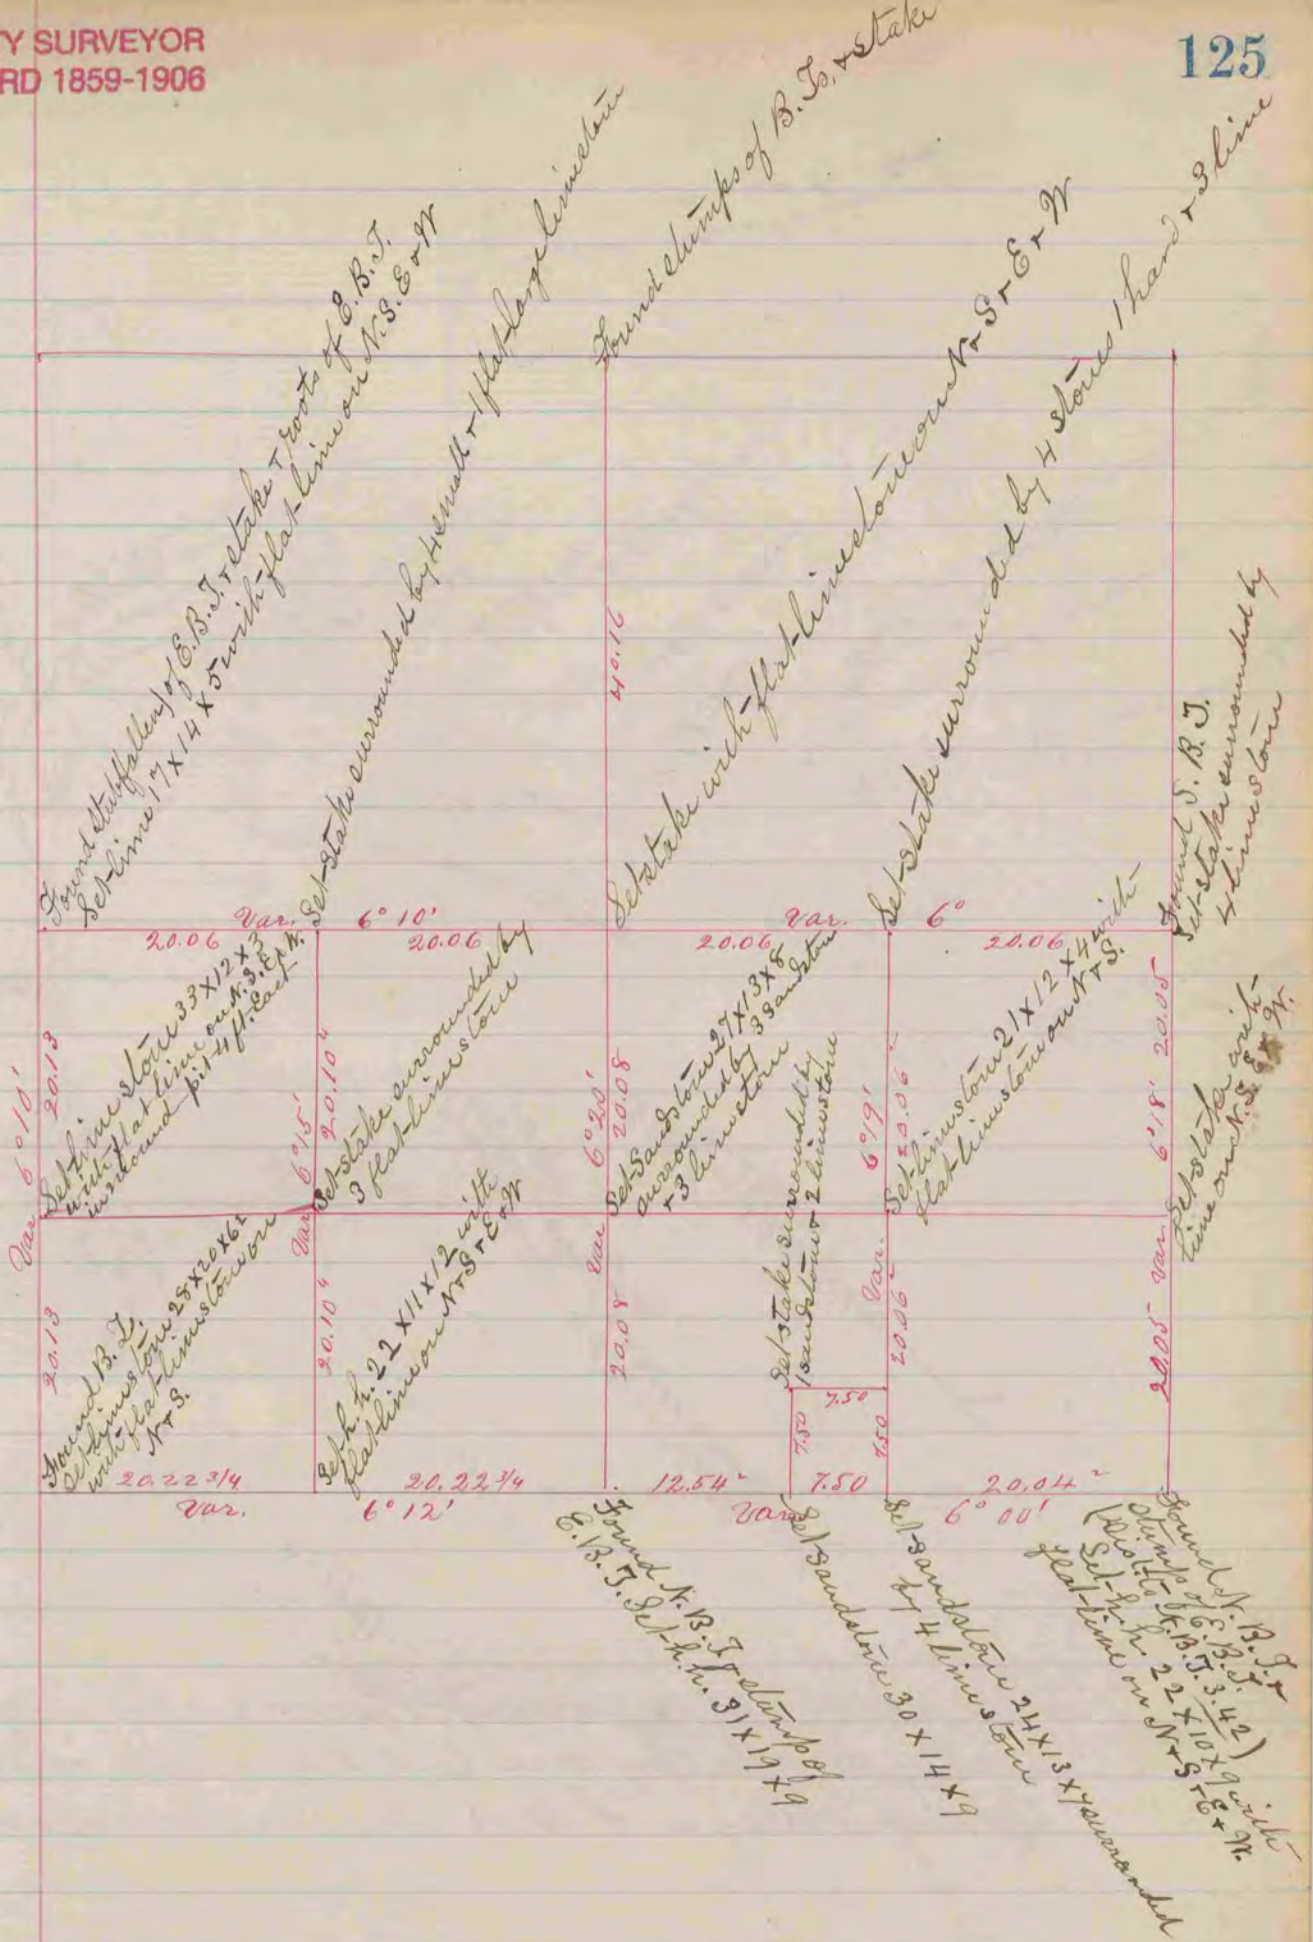 Y SURVEYOR
RD 1859-1906
125
Found stumps of B. Ts. + stake
Found stub (fallen) of E.B.T. + stake + roots of E.B.T.
Set lime 17 x 14 x 5 with flat lime on N.S.E + W
Set stake surrounded by 4 small + 1 flat large limestone
40.16
Set stake with flat limestone on N + S + E + W
Set stake surrounded by 4 stones 1 hard + 3 lime
Found S. B. T.
Set stake surrounded by
4 limestone
Var. 6° 10'
Var. 6°
20.06
20.06
20.06
20.06
Var. 6° 10'
20.13
Set lime stone 33 x 12 x 3
with flat lime on N.S.E + W.
mound pit 4 ft. East
Var. 6° 15'
20.10"
Set stake surrounded by
3 flat limestone
Var. 6° 20'
20.08
Set Sandstone 27 x 13 x 8
surrounded by 3 sandstone
+ 3 limestone
Var. 6° 19'
20.06
Set limestone 21 x 12 x 4 with
flat limestone on N + S.
Var. 6° 18'
20.05
Set stake with
lime on N.S.E + W.
20.13
Found B. T.
Set limestone 28 x 20 x 6
with flat limestone on
N + S.
20.10"
Set h.h. 22 x 11 x 12 with
flat lime on N + S + E + W
20.08
Set stake surrounded by
1 sandstone + 2 limestone
20.06
20.05
7.50
7.50
7.50
20.22 3/4
20.22 3/4
12.54
7.50
20.04
Var. 6° 12'
Var. 6° 00'
Found N. B. T + stump of
E. B. T. Set h.h. 31 x 19 x 9
Set sandstone 30 x 14 x 9
Set sandstone 24 x 13 x 7 surrounded
by 4 limestone
Found N. B. T. +
stump of E. B. T.
(Dist. to N.B.T. 3.42)
Set h.h. 22 x 10 x 9 with
flat lime on N + S + E + W.